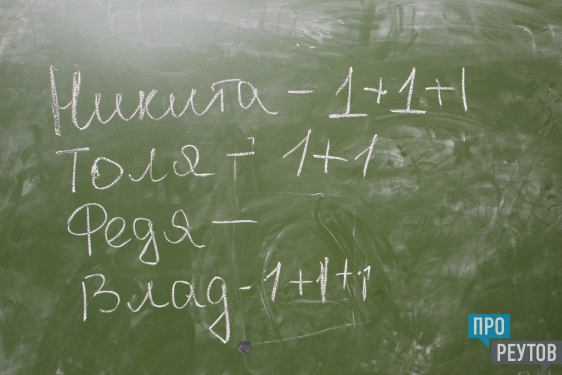 Никита - 1+1+1
Толя - 1+1
Федя -
Влад - 1+1+1
ПРО
РЕУТОВ